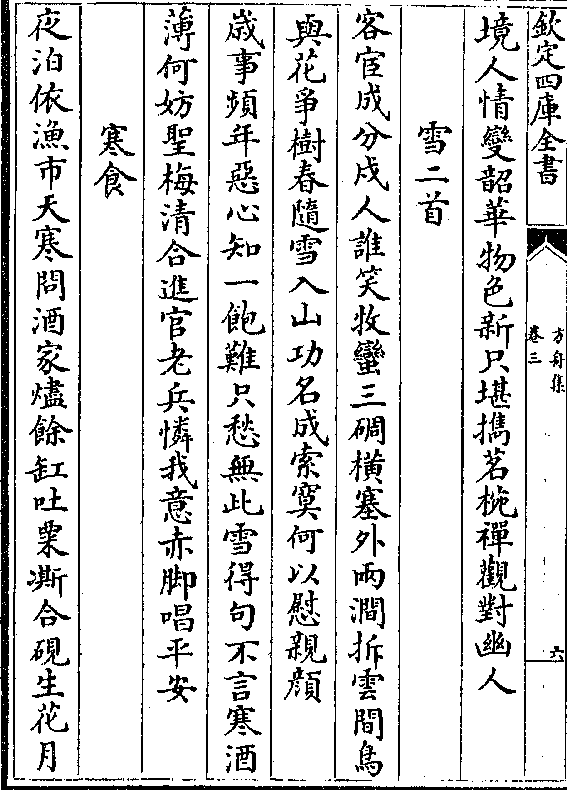 欽定四庫全書
方舟集
卷三
六
境人情變韶華物色新只堪擕茗椀禪觀對幽人
雪二首
客宦成分戍人誰笑牧蠻三碉橫塞外兩澗拆雲間鳥
與花爭樹春隨雪入山功名成索寞何以慰親顔
歳事頻年惡心知一飽難只愁無此雪得句不言寒酒
薄何妨聖梅清合進官老兵憐我意赤脚唱平安
寒食
夜泊依漁市天寒問酒家燼餘缸吐粟凘合硯生花月